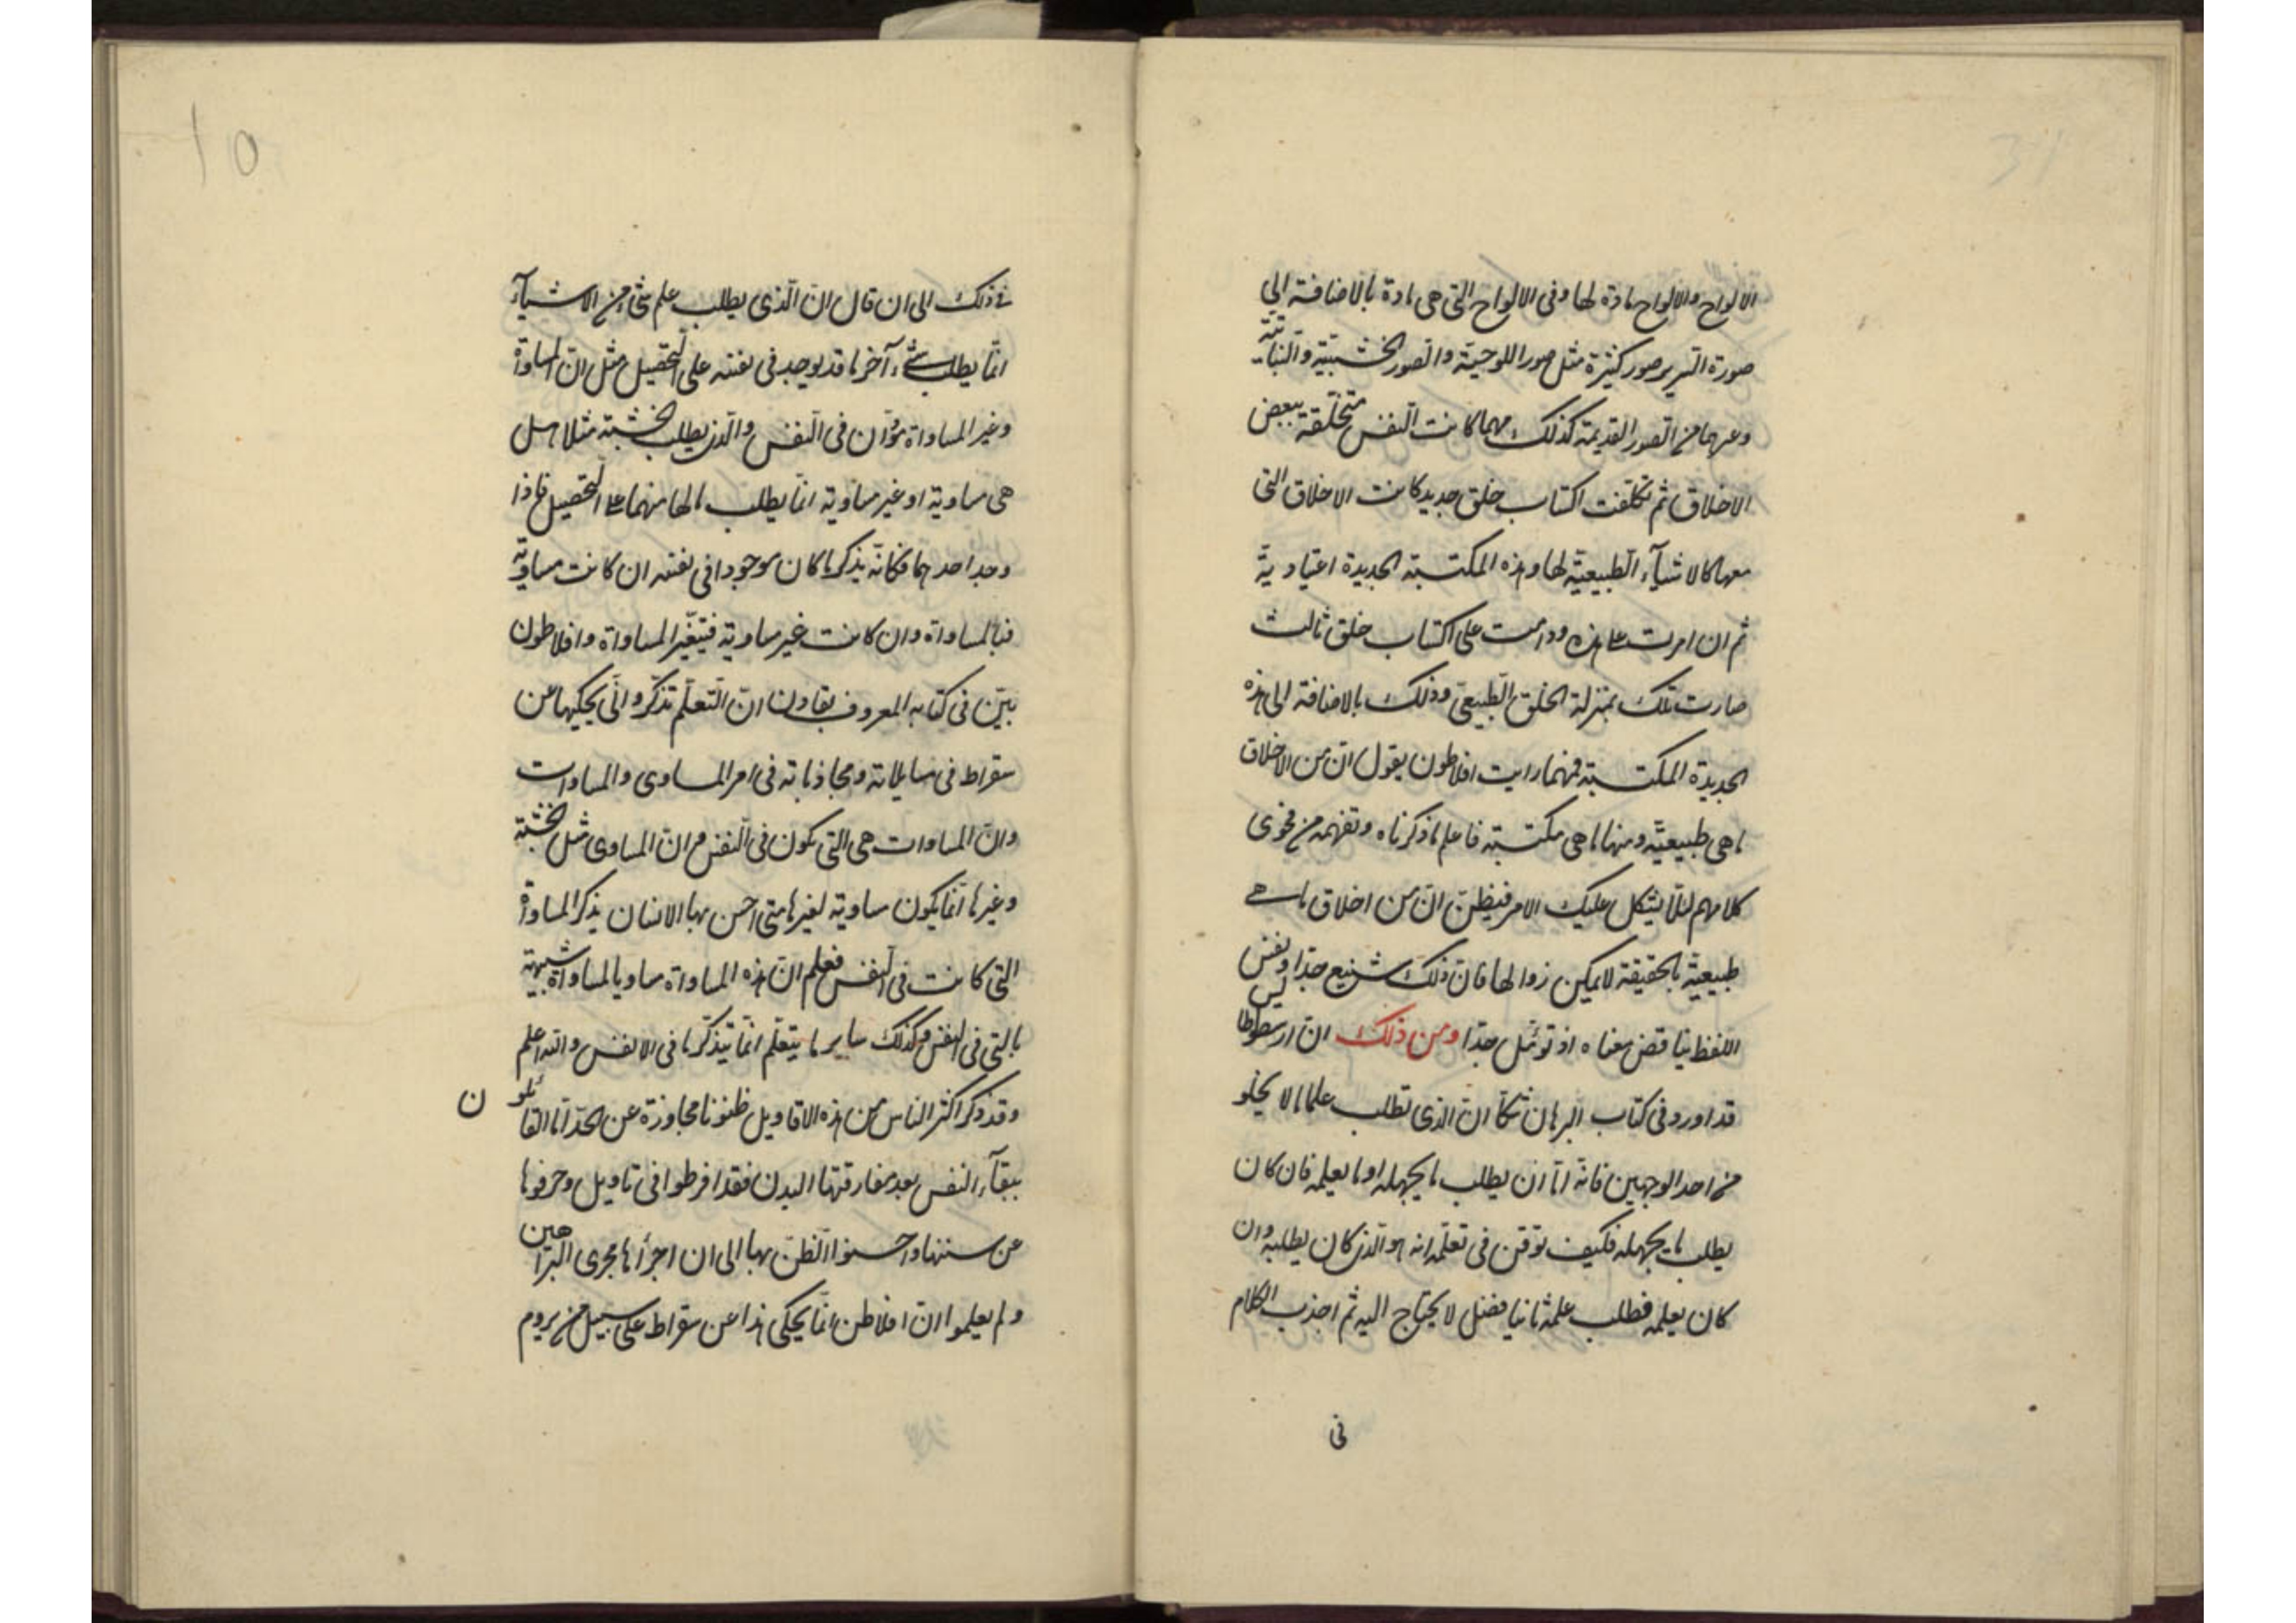 الالواح والالواح مادة لها وفى الالواح التى هى مادة بالاضافة الى
صورة السرير صور كثيرة مثل صور اللوحية والصور الخشبية والنباتية
وغيرهما من الصور القديمة كذلك مهما كانت النفس متخلقة ببعض
الاخلاق ثم تكلفت اكتساب خلق جديد كانت الاخلاق التى
معها كالاشيآء الطبيعية لها وهذه المكتسبة الجديدة اعتيادية
ثم ان امرت على هذه ودامت على اكتساب خلق ثالث
صارت تلك بمنزلة الخلق الطبيعى وذلك بالاضافة الى هذه
الجديدة المكتسبة فمهما رايت افلاطون يقول ان من الاخلاق
ما هى طبيعية ومنها ما هى مكتسبة فاعلم ما ذكرناه وتفهمه من فحوى
كلامهم لئلا يشكل عليك الامر فيظن ان من اخلاق ما هى
طبيعية بالحقيقة لا يمكن زوالها فان ذلك شنيع جدا ونفس
اللفظ يناقض معناه اذ توئمل جدا ومن ذلك ان ارسطوطاليس
قد اورد فى كتاب البرهان شكا ان الذى تطلب علما ما لا يخلو
من احد الوجهين فانه اما ان يطلب ما يجهله او ما يعلمه فان كان
يطلب ما يجهله فكيف توقن فى تعلمه انه هو الذى كان يطلبه وان
كان يعلمه فطلب علمه ثانيا فضل لا يحتاج اليه ثم اجذب الكلام
فى
10
فى ذلك الى ان قال ان الذى يطلب علم شئ من الاشيآء
انما يطلب شئ آخر ما قد يوجد فى نفسه على التحصيل مثل ان المساواة
وغير المساواة مؤان فى النفس والذى يطلب الخشبة مثلا هل
هى مساوية او غير مساوية انما يطلب مالها منهما على التحصيل فاذا
وجد احدهما فكانه يذكر ما كان موجودا فى نفسه ان كانت مساوية
فبالمساواة وان كانت غير مساوية فبتغير المساواة وافلاطون
بين فى كتابه المعروف بفادن ان التعلم تذكر وانى يحكيها عن
سقراط فى مسايلاته ومجاذباته فى امر المساوى والمساوات
وان المساوات هى التى تكون فى النفس وان المساوى مثل الخشبة
وغيرها انما يكون مساوية لغيرها متى احس بها الانسان يذكر المساواة
التى كانت فى النفس فعلم ان هذه المساواة مساويا لمساواة شبيهة
بالتى فى النفس وكذلك ساير ما يتعلم انما يتذكر ما فى الانفس والله اعلم
وقد ذكر اكثر الناس من هذه الاقاويل ظنونا مجاوزة عن الحد اما القائلون
ببقآء النفس بعد مفارقتها البدن فقد افرطوا فى تاويل وحرفوها
عن سننها واحسنوا الظن بها الى ان اجراها مجرى البراهين
ولم يعلموا ان افلاطن انما يحكى هذا عن سقراط على سبيل من يروم